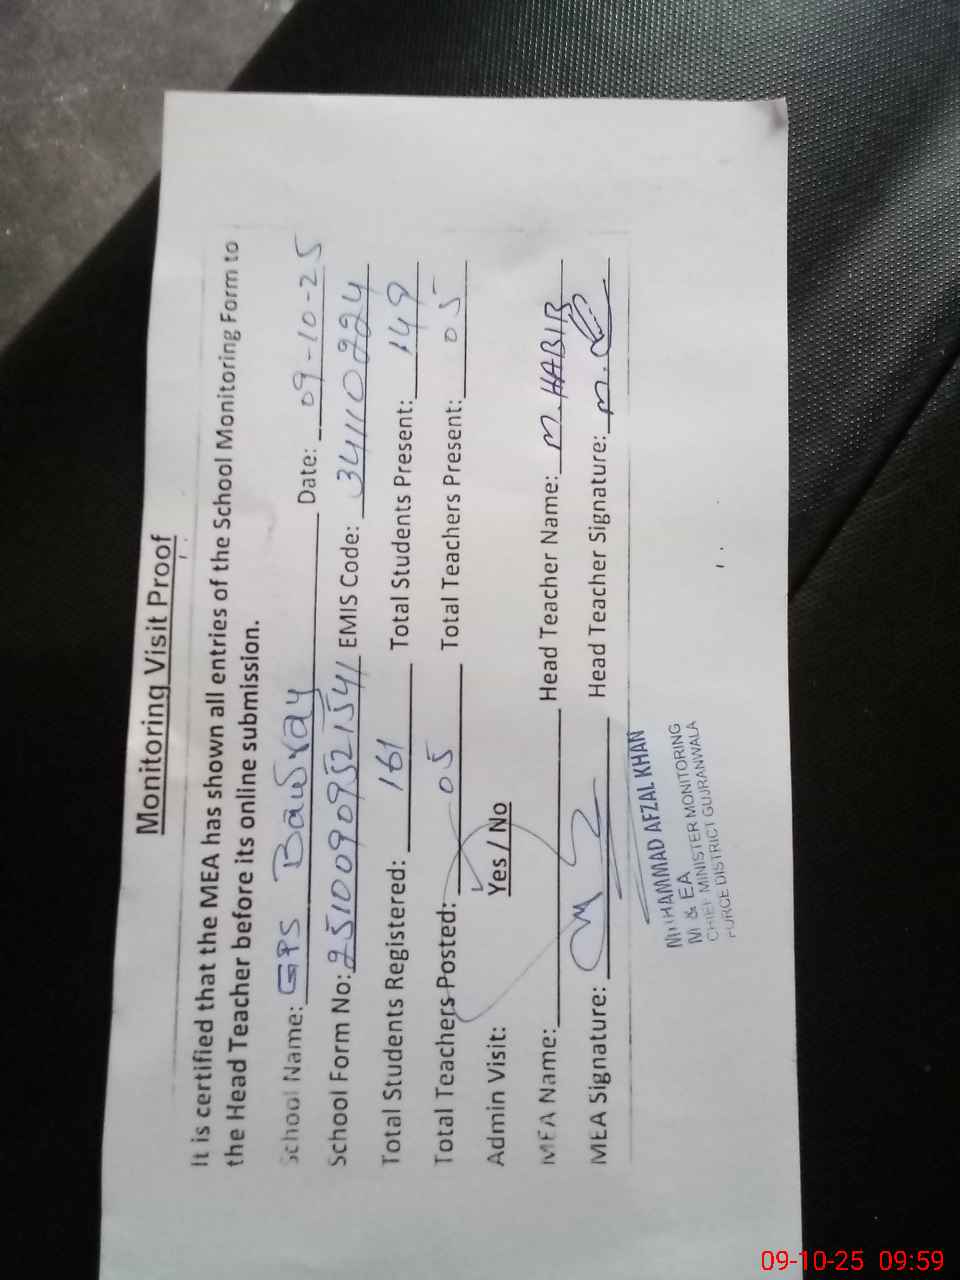 Monitoring Visit Proof
It is certified that the MEA has shown all entries of the School Monitoring Form to
the Head Teacher before its online submission.
School Name: GPS Bawray Date: 09-10-25
School Form No: 2510090952154 EMIS Code: 34110224
Total Students Registered: 161 Total Students Present: 149
Total Teachers Posted: 05 Total Teachers Present: 05
Admin Visit: Yes / No
MEA Name: Head Teacher Name: M. HABIB
MEA Signature: Head Teacher Signature: M.
MUHAMMAD AFZAL KHAN
M & EA
CHIEF MINISTER MONITORING
FORCE DISTRICT GUJRANWALA
09-10-25 09:59